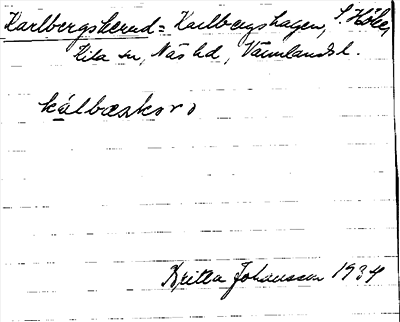 Karlbergskerud = Karlbergshagen, S. Höle,
Kila sn, Näs hd, Värmlands l.
kálbæskoro
Britta Johansson 1934